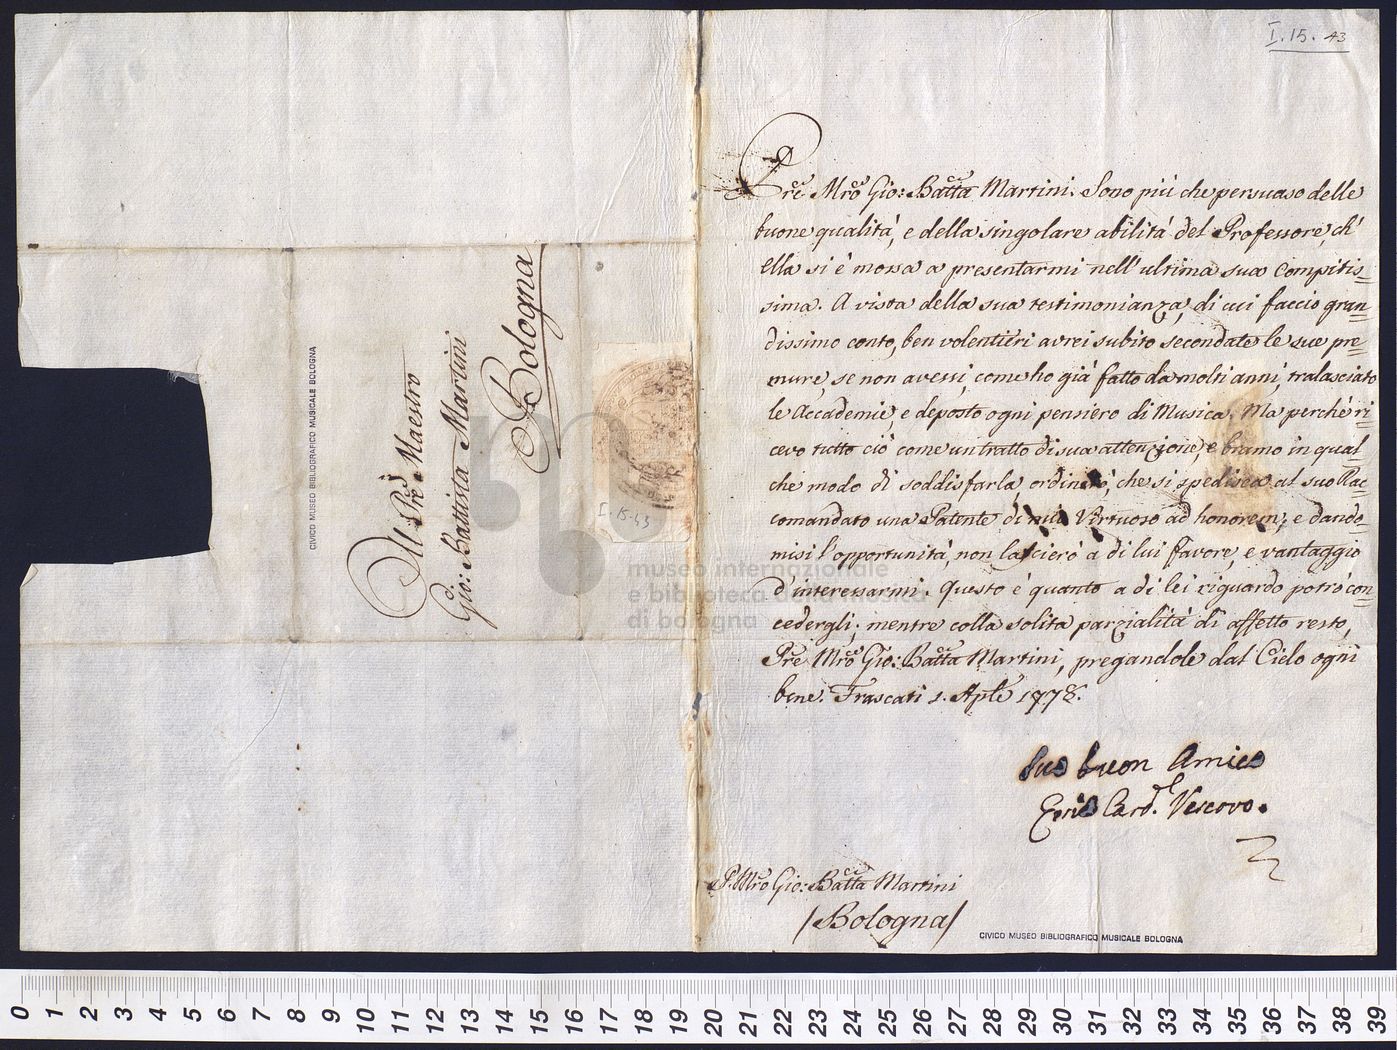 I. 15. 43
Pre Mro Gio: Batta Martini. Sono più che persuaso delle
buone qualità, e della singolare abilità del Professore, ch'
ella si è mossa a presentarmi nell'ultima sua compitis=
sima. A vista della sua testimonianza, di cui faccio gran=
dissimo conto, ben volentieri avrei subito secondate le sue pre=
mure, se non avessi, come ho già fatto da molti anni, tralasciato
le Accademie, e deposto ogni pensiero di Musica. Ma perché ri
cevo tutto ciò come un tratto di sua attenzione, e bramo in qual=
che modo di soddisfarla, ordinerò, che si spedisca al suo Rac=
comandato una Patente di mio Virtuoso ad honorem, e dando=
misi l'opportunità, non lascierò a di lui favore, e vantaggio
d'interessarmi. Questo è quanto a di lei riguardo potrò con=
cedergli; mentre colla solita parzialità di affetto resto,
Pre Mro Gio: Batta Martini, pregandole dal Cielo ogni
bene. Frascati 1. Aple 1778.
Suo buon Amico
Card. Vescovo.
P. Mro Gio: Batta Martini
/Bologna/
CIVICO MUSEO BIBLIOGRAFICO MUSICALE BOLOGNA
Al Pre Maestro
Gio: Battista Martini
Bologna
I. 15. 43
CIVICO MUSEO BIBLIOGRAFICO MUSICALE BOLOGNA
museo internazionale
e biblioteca della musica
di bologna
0 1 2 3 4 5 6 7 8 9 10 11 12 13 14 15 16 17 18 19 20 21 22 23 24 25 26 27 28 29 30 31 32 33 34 35 36 37 38 39